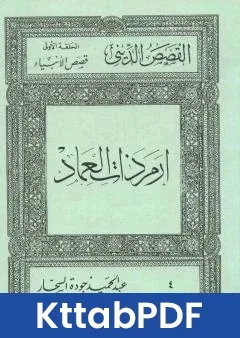 القصص الديني
الحلقة الأولى
قصص الأنبياء
إرم ذات العماد
٤
عبد الحميد جودة السحار
KttabPDF